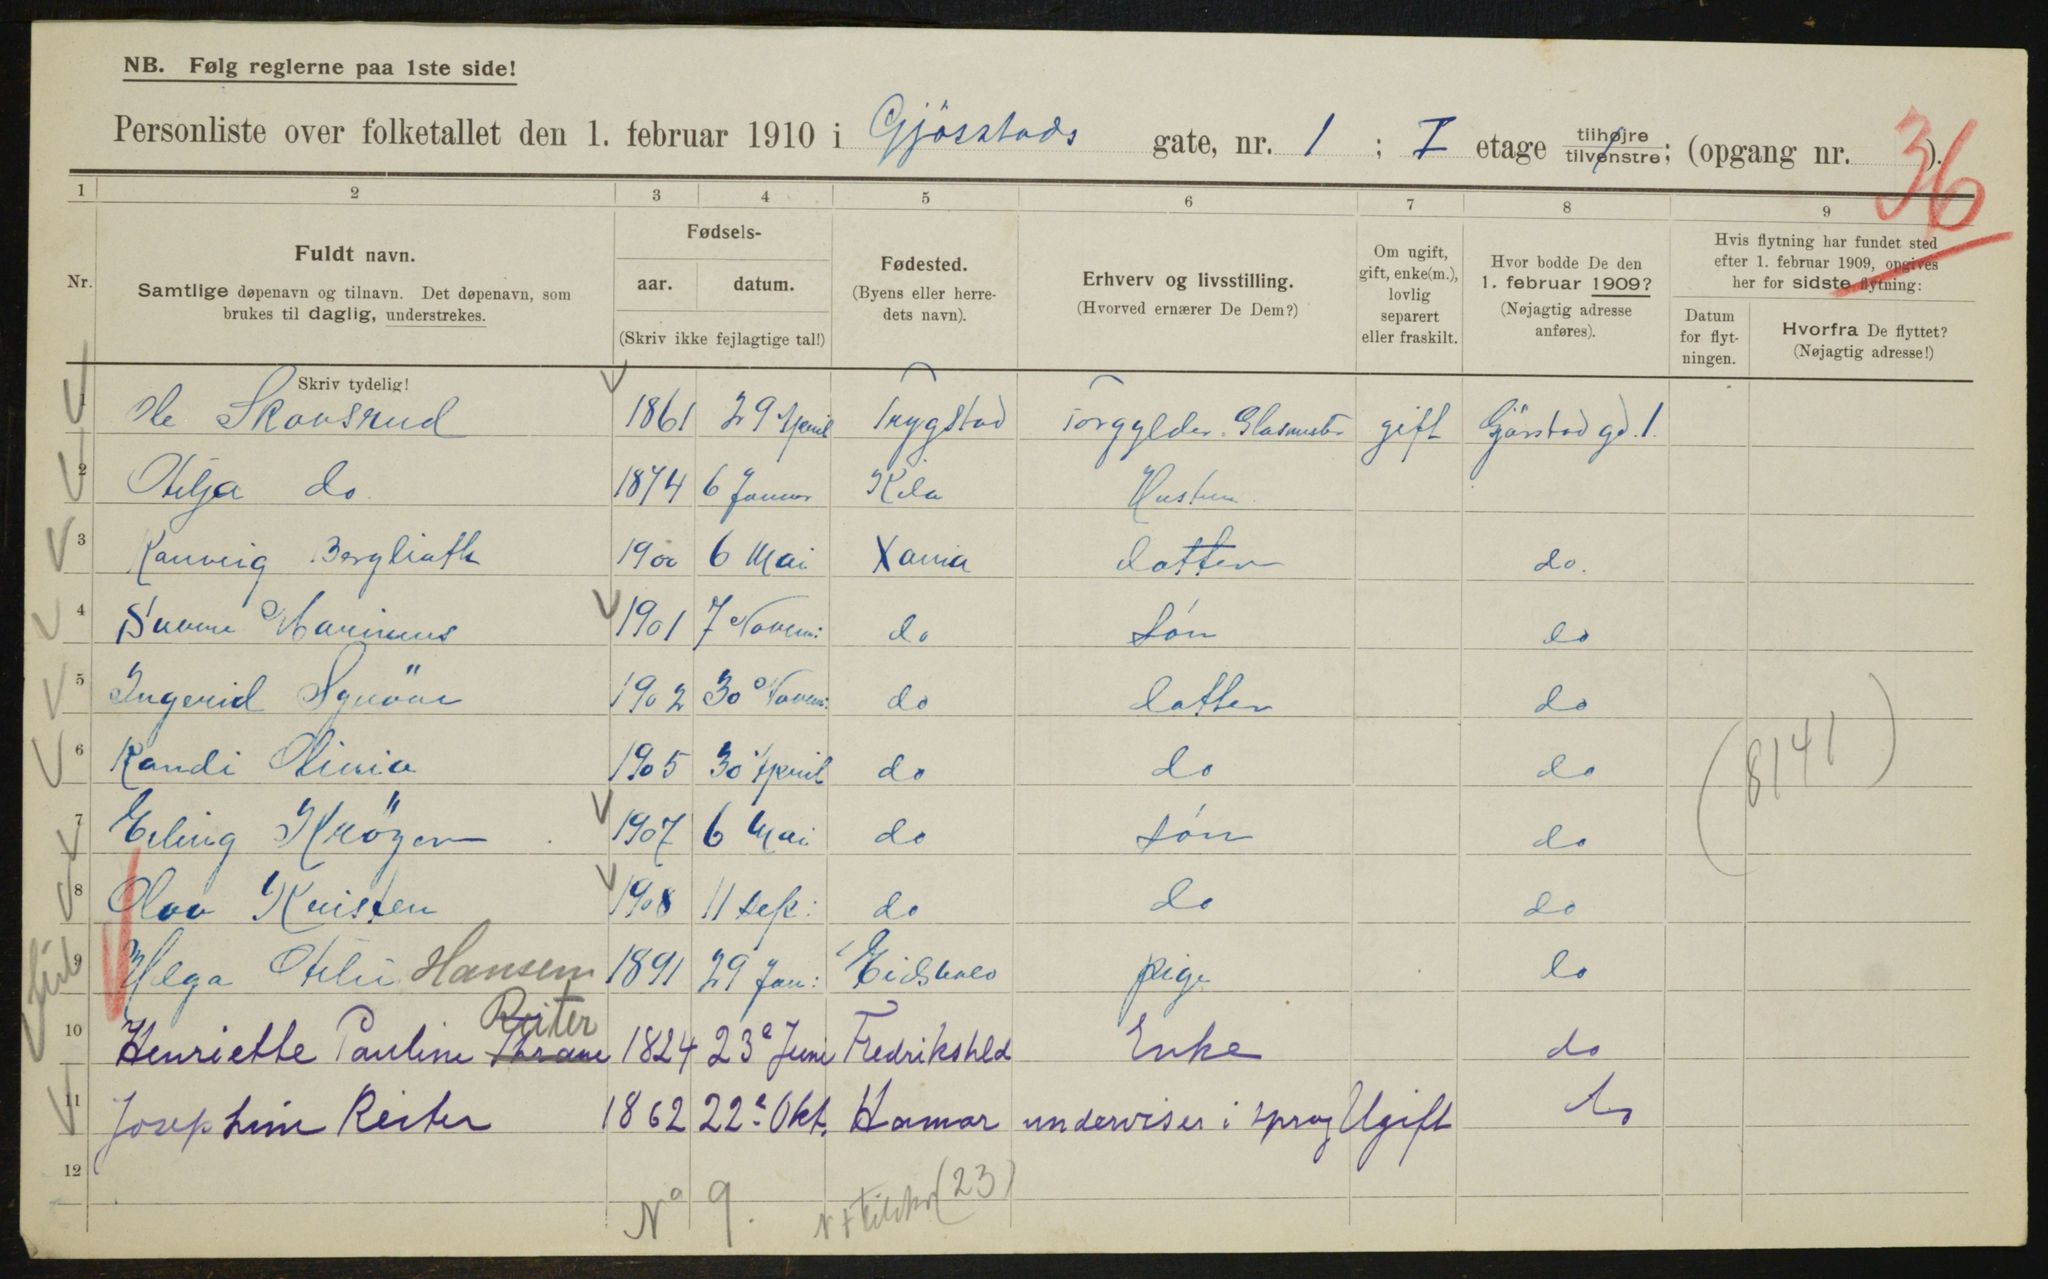 NB. Følg reglerne paa 1ste side!
Personliste over folketallet den 1. februar 1910 i Gjösstads gate, nr. 1 ; I etage tilhøjre tilvenstre; (opgang nr. ).
36
1 2 3 4 5 6 7 8 9
Nr.
Fuldt navn.
Samtlige døpenavn og tilnavn. Det døpenavn, som
brukes til daglig, understrekes.
Fødsels-
aar. datum.
(Skriv ikke fejlagtige tal!)
Fødested.
(Byens eller herre-
dets navn).
Erhverv og livsstilling.
(Hvorved ernærer De Dem?)
Om ugift,
gift, enke(m.),
lovlig
separert
eller fraskilt.
Hvor bodde De den
1. februar 1909?
(Nøjagtig adresse
anføres).
Hvis flytning har fundet sted
efter 1. februar 1909, opgives
her for sidste flytning:
Datum
for flyt-
ningen.
Hvorfra De flyttet?
(Nøjagtig adresse!)
Skriv tydelig!
1 Ole Skovsrud 1861 29 April Trygstad Forgylder. Glasmester gift Gjörstad gd. 1.
2 Otilja do. 1874 6 Januar Kila Hustru.
3 Ranveig Berglioth 1900 6 Mai Xania Datter do.
4 Marinius 1901 7 Novem: do Søn do
5 Ingerid 1902 30 Novem: do Datter do
6 Randi Olivia 1905 30 April do do do
7 Erling Kröger 1907 6 Mai do Søn do
8 Olav Kristen 1908 11 Sep: do do do
9 Helga Otilie Hansen 1891 29 Jan: Eidsvold pige do
10 Henriette Pauline Thrane Reiter 1824 23e Juni Fredrikshld Enke do
11 Josephine Reiter 1862 22e Okt. Hamar underviser i sprog Ugift do
12
(8141)
No 9.
(23)